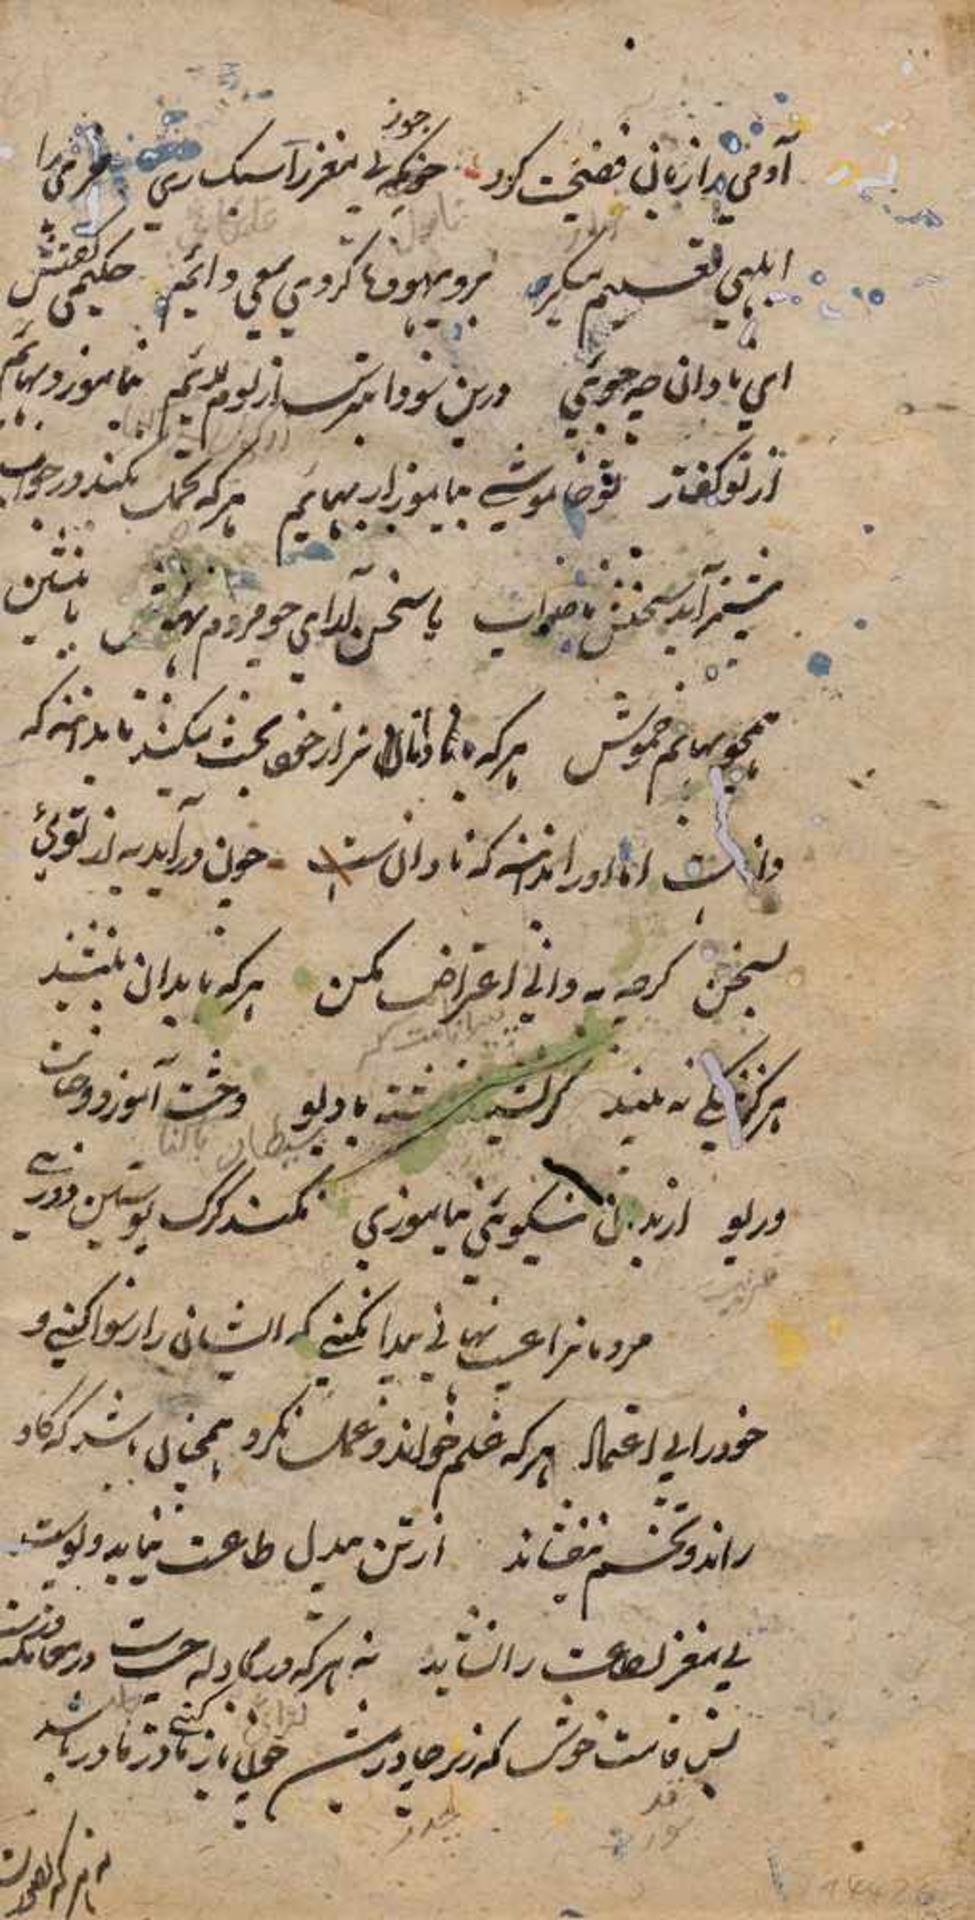 جوز
آدمی را زبان فضیحت کرد جوز بی مغز را سبکساری خری را
ابلهی تعلیم میکرد برو بیهوده کردی سعی دایم حکیمی گفتش
ای نادان چه جوئی درین سودا بترس از لوم لایم نیاموزد بهایم
از تو گفتار تو خاموشی بیاموز از بهایم هر که تامل نکند در جواب
بیشتر آید سخنش ناصواب یا سخن آرای چو مردم بهوش یا بنشین
همچو بهایم خموش هر که با داناتر از خود بحث میکند تا بدانند که
داناست اما او را دانند که نادان است چون درآید به از توئی
بسخن گرچه به دانی اعتراض مکن هر که با بدان نشیند
هرگز نیکی نه بیند گر نشیند فرشته با دیو وحشت آموزد و خیانت
و ریو از بدان نیکوئی نیاموزی نکند گرگ پوستین دوزی
مردمانرا عیب نهانی پیدا مکن که ایشان را رسوا کنی و
خود را بی اعتماد هر که علم خواند و عمل نکرد همچنان باشد که گاو
راند و تخم نیفشاند از تن بیدل طاعت نیاید و پوست
بی مغز بضاعت را نشاید نه هر که در مجادله چست در معامله درست
بس قامت خوش که زیر چادر باشد چون باز کنی مادر مادر باشد